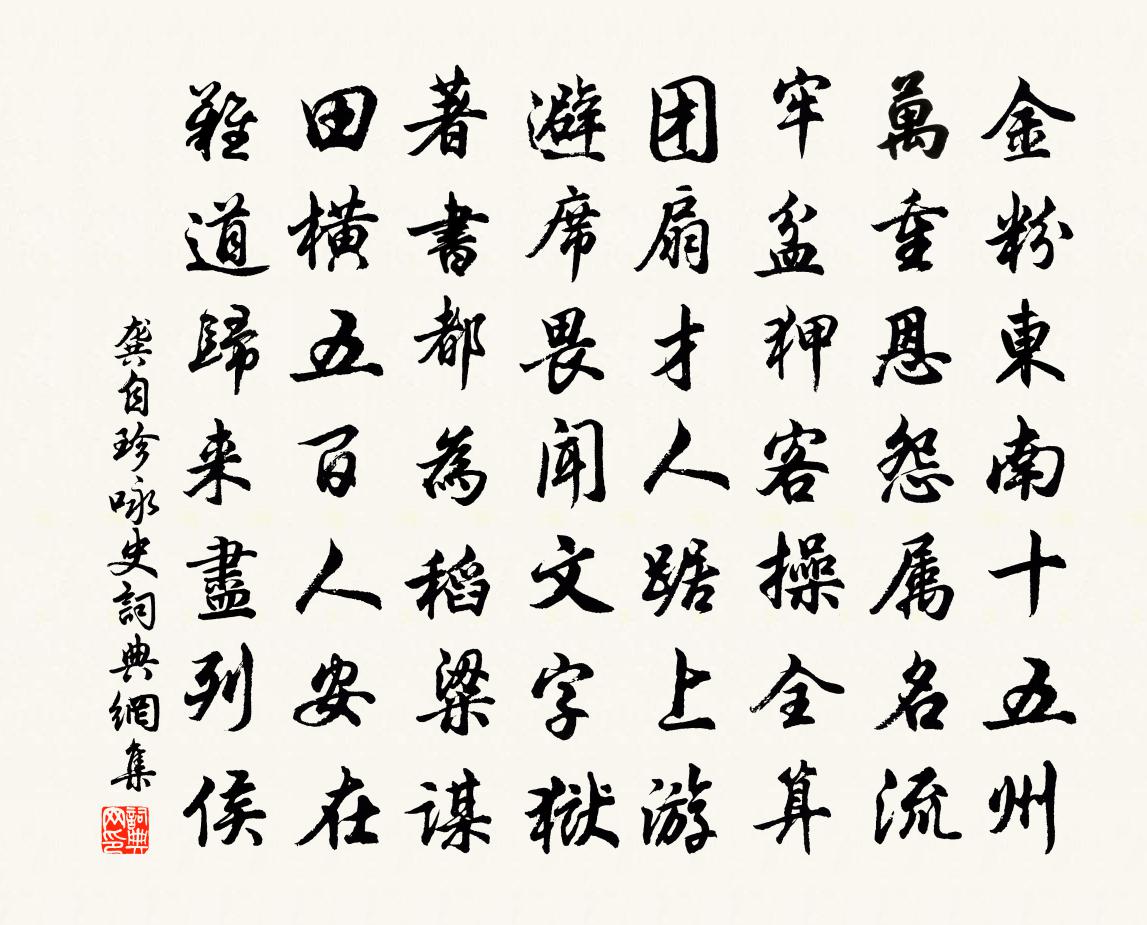 金粉東南十五州
萬重恩怨属名流
牢盆狎客操全算
团扇才人踞上游
避席畏聞文字獄
著書都為稻粱謀
田横五百人安在
難道歸来盡列侯
龔自珍咏史詞典網集
詞典網印